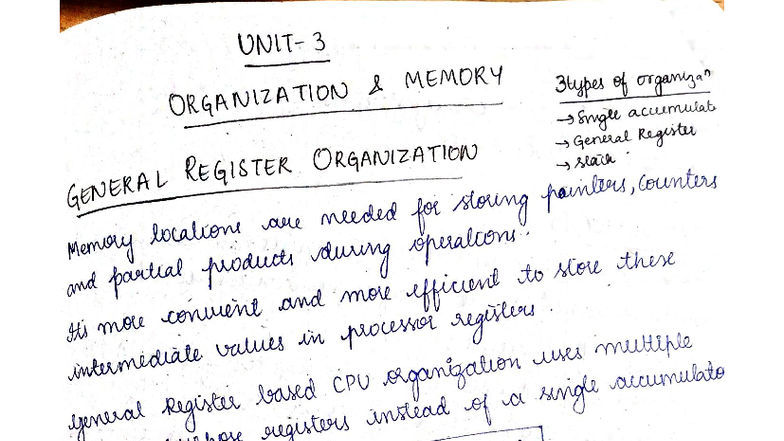 UNIT-3
ORGANIZATION & MEMORY
3types of organizaⁿ
→ Single accumulat
→ General Register
→ Stack
GENERAL REGISTER ORGANIZATION
Memory locations are needed for storing pointers, counters
and partial products during operations.
It's more convient and more efficient to store these
intermediate values in processor registers.
General Register based CPU organization uses multiple
registers instead of a single accumulato